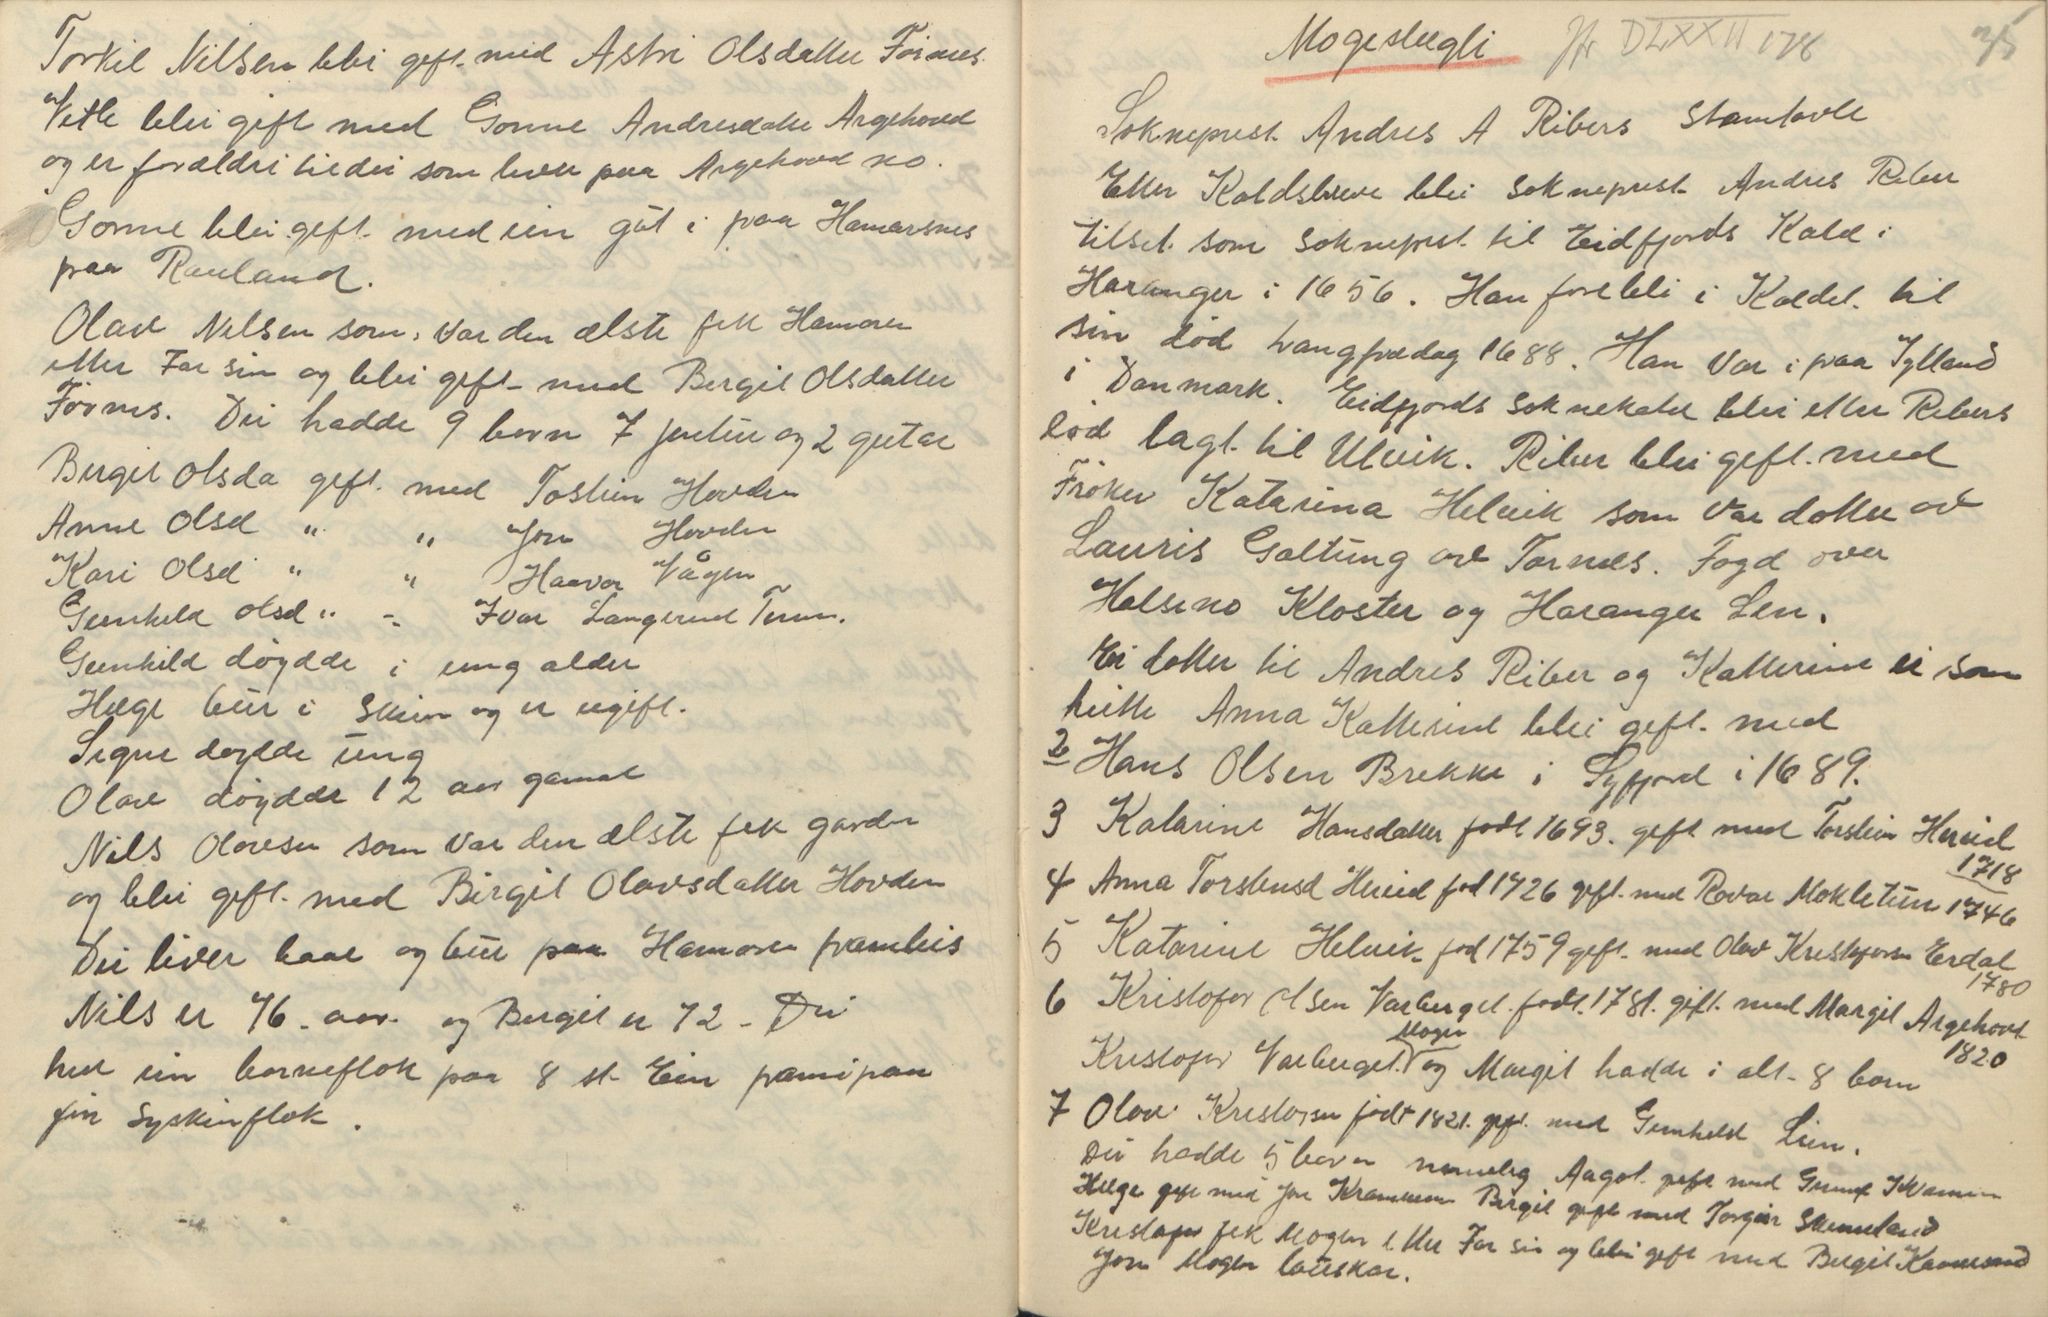 Torkil Nilsen blei gift med Astri Olsdatter Førnes
Vetle blei gift med Gonne Andresdatte Argehovd
og er forældri til dei som lever paa Argehovd no.
Gonne blei gift med ein gut i paa Hamarsnes
paa Rauland.
Olav Nilsen som var den ælste fek Hamaren
etter Far sin og blei gift med Bergit Olsdatter
Førnes. Dei hadde 9 born 7 jentur og 2 gutar
Bergit Olsda gift med Tostein Hovden
Anne Olsd " " Jon Hovden
Kari Olsd " " Haavor Vågen
Gunhild Olsd " - Ivar Langerud Tinn.
Gunhild döydde i ung alder
Hæge bur i Skien og er ugift.
Signe døydde ung
Olav döydde 12 aar gamal
Nils Olavsen som var den ælste fek garden
og blei gift med Birgit Olavsdatter Hovden
Dei liver baae og bur paa Hamaren framleis
Nils er 76 aar og Bergit er 72 - Dei
hev ein borneflok paa 8 st. Ein framifraa
fin Syskinflok.
Mogeslegti Jfr DLXXII 178
35
Sokneprest Andres A Ribers Stamtavle
Etter Kaldsbreve blei sokneprest Andres Riber
tilset som sokneprest til Eidfjords Kald i
Haranger i 1656. Han foreblei i Kaldet til
sin död Langfredag 1688. Han var i paa Jylland
i Danmark. Eidfjords soknekald blei etter Ribers
död lagt til Ulvik. Riber blei gift med
Fröken Katarina Helvik som var dotter av
Lauris Galtung av Torsnes. Fogd over
Halsno Kloster og Haranger Len.
Ei dotter til Andres Riber og Katterine ei som
heitte Anna Katterine blei gift med
2 Hans Olsen Brekke i Syfjord i 1689.
3 Katarine Hansdatter født 1693. gift med Torstein Hereid
1718
4 Anna Torsteinsd Hereid fød 1726 gift med Roar Mokletun 1746
5 Katarine Helvik fød 1759 gift med Olav Kristofersen Erdal
1780
6 Kristofer Olsen Varberget. födt. 1781. gift. med Margit Argehovd
1820
Mogen
Kristofer Varberget og Margit hadde i alt 8 born
7 Olav Kristofsen født 1821. gift med Gunhild Lien.
Dei hadde 5 born nemeleg Aagot gift med Gunnuf Kvamen
Hæge gift med Jon Bergit gift med Torgeir Skinneland
Kristofer fek Mogen etter Far sin og blei gift med Bergit
Jon Mogen lauskar.